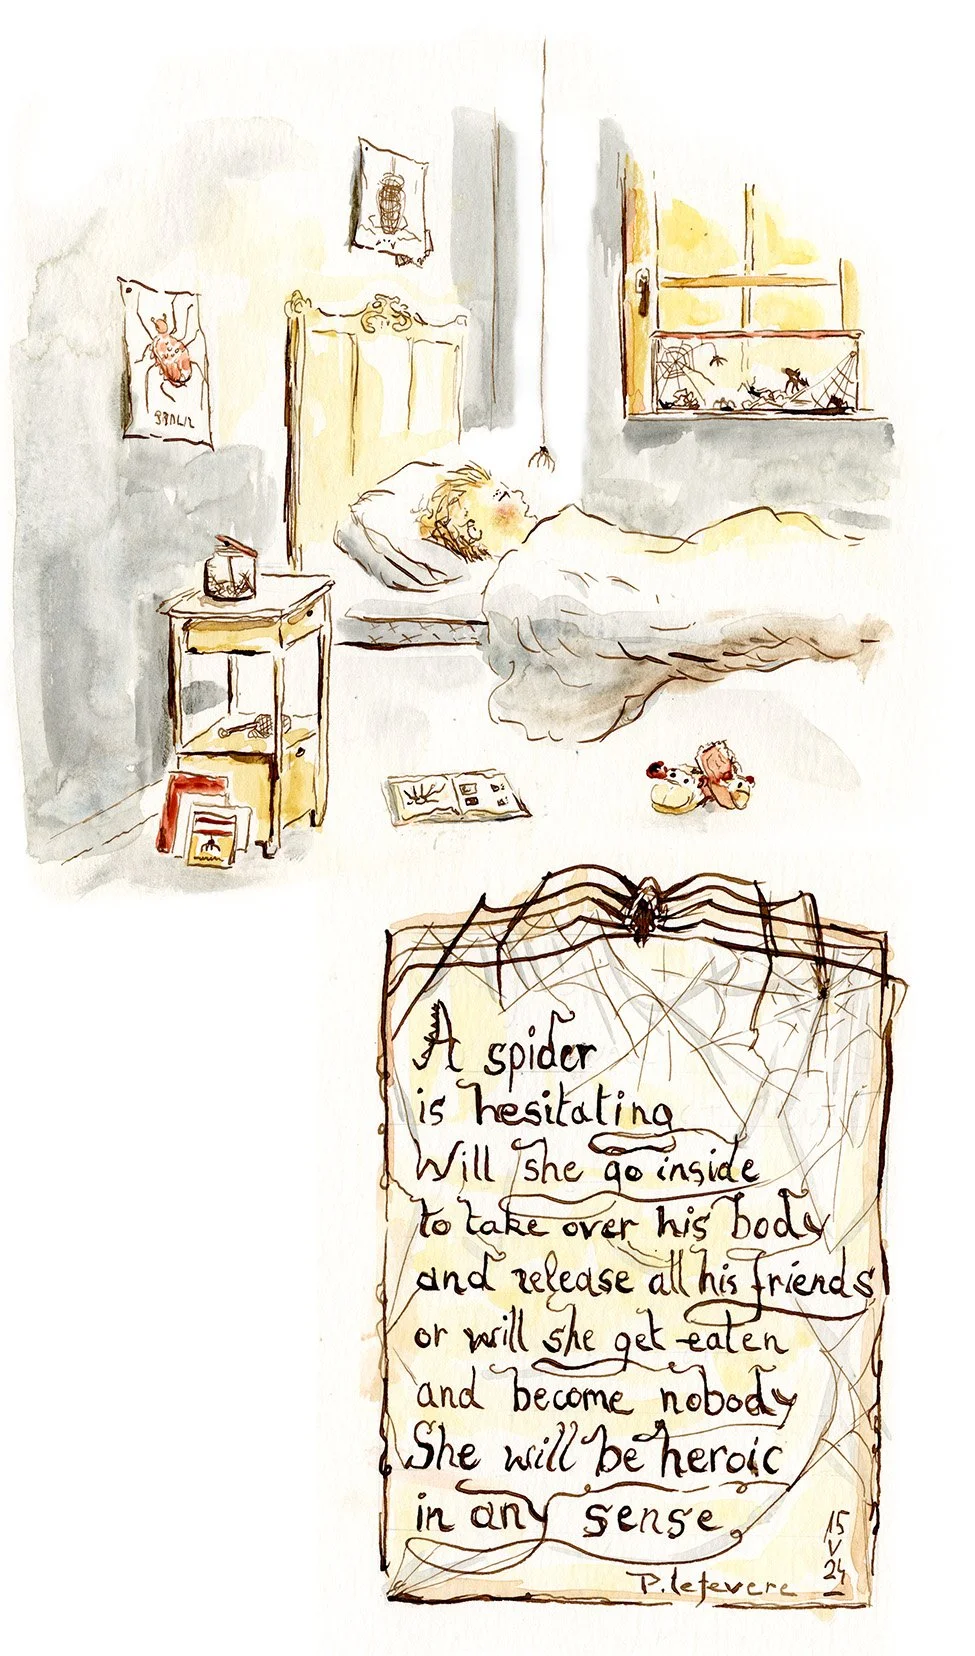 A spider
is hesitating
Will she go inside
to take over his body
and release all his friends
or will she get eaten
and become nobody
She will be heroic
in any sense
15
V
24
P. lefevere